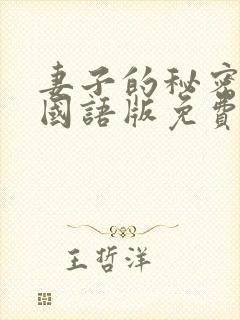 妻子的秘密
國語版免費
王哲洋